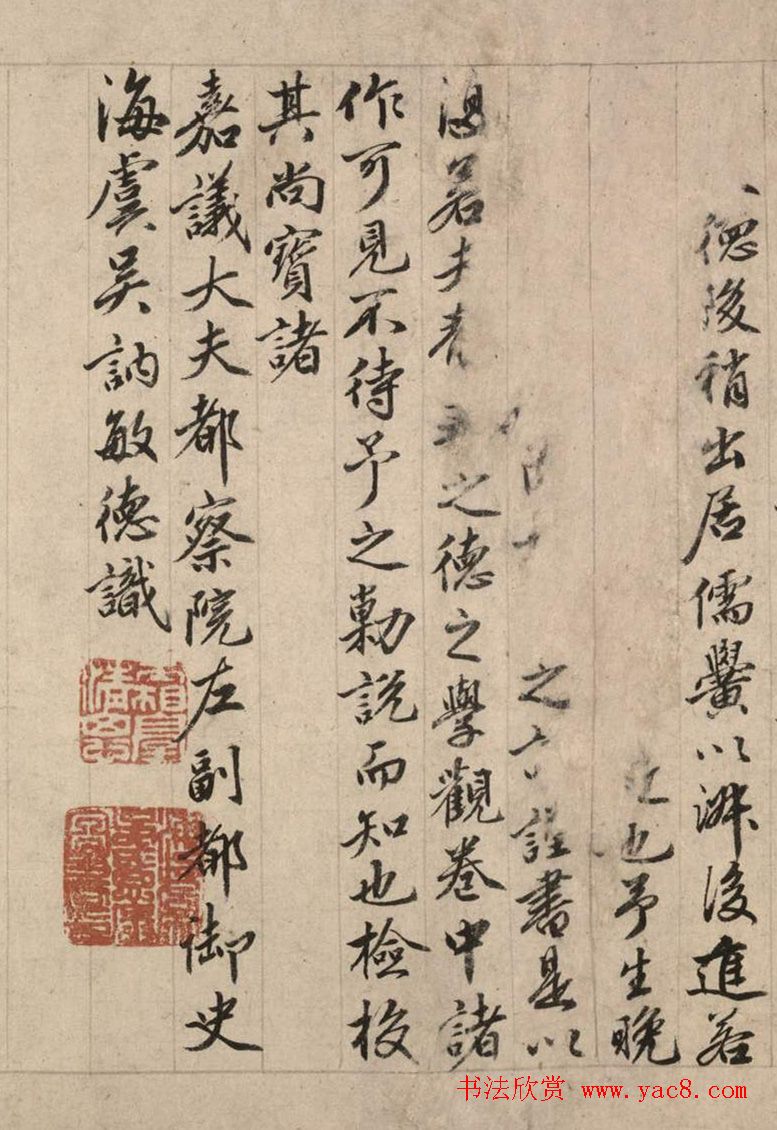 德後稍出居儒黌以淑後進若
也予生晚
之言謹書是以
若夫之德之學觀卷中諸
作可見不待予之勦說而知也檢校
其尚寶諸
嘉議大夫都察院左副都御史
海虞吳訥敏德識
书法欣赏 www.yac8.com